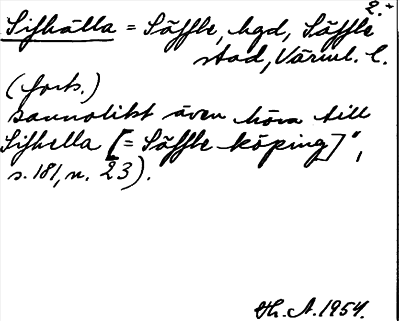 2.+
Sifhälla = Säffle, hgd, Säffle
stad, Värml. l.
(forts.)
sannolikt även höra till
Sifhella [= Säffle köping]",
s. 181, n. 23).
Th. A. 1954.